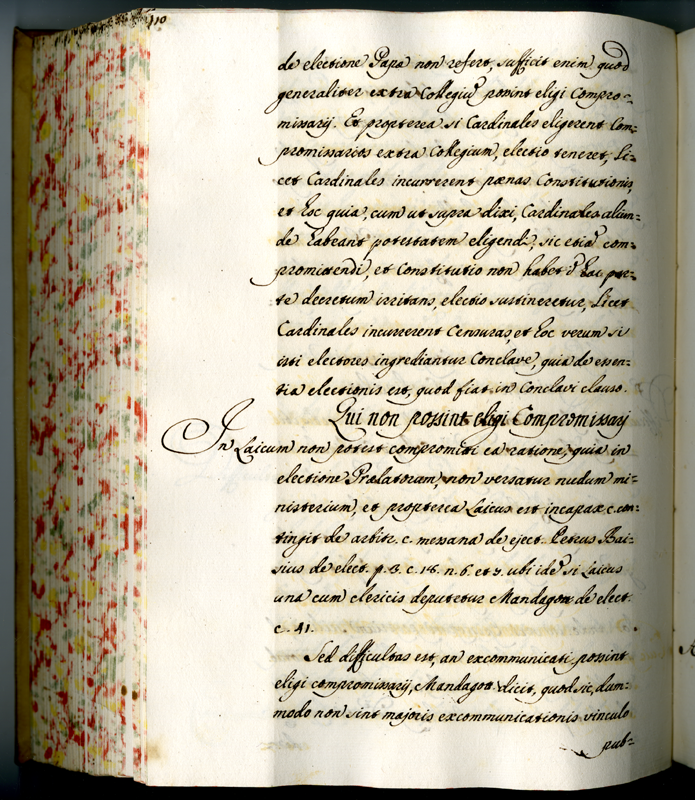 110
de electione Papæ non refert, sufficit enim quod
generaliter extra Collegiū possint eligi Compro=
missarij. Et propterea si Cardinales eligerent Com=
promissarios extra Collegium, electio teneret, Li=
cet Cardinales incurrerent pœnas Constitutionis,
et hoc quia, cum ut supra dixi, Cardinales aliun=
de habeant potestatem eligendi, sic etiā com=
promittendi, et Constitutio non habet ī hac par=
te decretum irritans, electio sustineretur, Licet
Cardinales incurrerent Censuras, et hoc verum si
isti electores ingrediantur Conclave, quia de essen=
tia electionis est, quod fiat in Conclavi clauso.
Qui non possint eligi Compromissarij
In Laicum non potest compromitti ea ratione, quia in
electione Prælatorum, non versatur nudum mi=
nisterium, et propterea Laicus est incapax c. con=
tingit de arbitr. c. messana de eject. Petrus Bai=
sius de elect. p. 3. c. 18. n. 6. et 7. ubi idē si Laicus
una cum clericis deputetur Mandagot de elect.
c. 41.
Sed difficultas est, an excommunicati possint
eligi compromissarij, Mandagot dicit, quod sic, dum=
modo non sint majoris excommunicationis vinculo
pub=